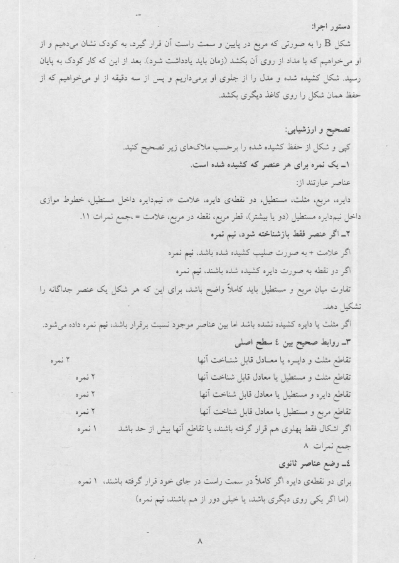 دستور اجرا:
شکل B را به صورتی که مربع در پایین و سمت راست آن قرار گیرد، به کودک نشان می‌دهیم و از
او می‌خواهیم که با مداد از روی آن بکشد (زمان باید یادداشت شود). بعد از این که کار کودک به پایان
رسید. شکل کشیده شده و مدل را از جلوی او برمی‌داریم و پس از سه دقیقه از او می‌خواهیم که از
حفظ همان شکل را روی کاغذ دیگری بکشد.
تصحیح و ارزشیابی:
کپی و شکل از حفظ کشیده شده را برحسب ملاک‌های زیر تصحیح کنید.
۱ـ یک نمره برای هر عنصر که کشیده شده است.
عناصر عبارتند از:
دایره، مربع، مثلث، مستطیل، دو نقطه‌ی دایره، علامت =، نیم‌دایره داخل مستطیل، خطوط موازی
داخل نیم‌دایره مستطیل (دو یا بیشتر)، قطر مربع، نقطه در مربع، علامت = ،جمع نمرات ۱۱.
۲ـ اگر عنصر فقط بازشناخته شود، نیم نمره
اگر علامت + به صورت صلیب کشیده شده باشد، نیم نمره
اگر دو نقطه به صورت دایره کشیده شده باشند، نیم نمره
تفاوت میان مربع و مستطیل باید کاملاً واضح باشد، برای این که هر شکل یک عنصر جداگانه را
تشکیل دهد.
اگر مثلث یا دایره کشیده نشده باشد اما بین عناصر موجود نسبت برقرار باشد، نیم نمره داده می‌شود.
۳ـ روابط صحیح بین ٤ سطح اصلی
تقاطع مثلث و دایـره یا معـادل قابل شنـاخت آنها ۲ نمره
تقاطع مثلث و مستطیل یا معادل قابل شناخت آنها ۲ نمره
تقاطع دایره و مستطیل یا معادل قابل شناخت آنها ۲ نمره
تقاطع مربع و مستطیل یا معادل قابل شناخت آنها ۲ نمره
اگر اشکال فقط پهلوی هم قرار گرفته باشند، یا تقاطع آنها بیش از حد باشد ۱ نمره
جمع نمرات ۸
٤ـ وضع عناصر ثانوی
برای دو نقطه‌ی دایره اگر کاملاً در سمت راست در جای خود قرار گرفته باشند، ۱ نمره
(اما اگر یکی روی دیگری باشد، یا خیلی دور از هم باشند، نیم نمره)
۸